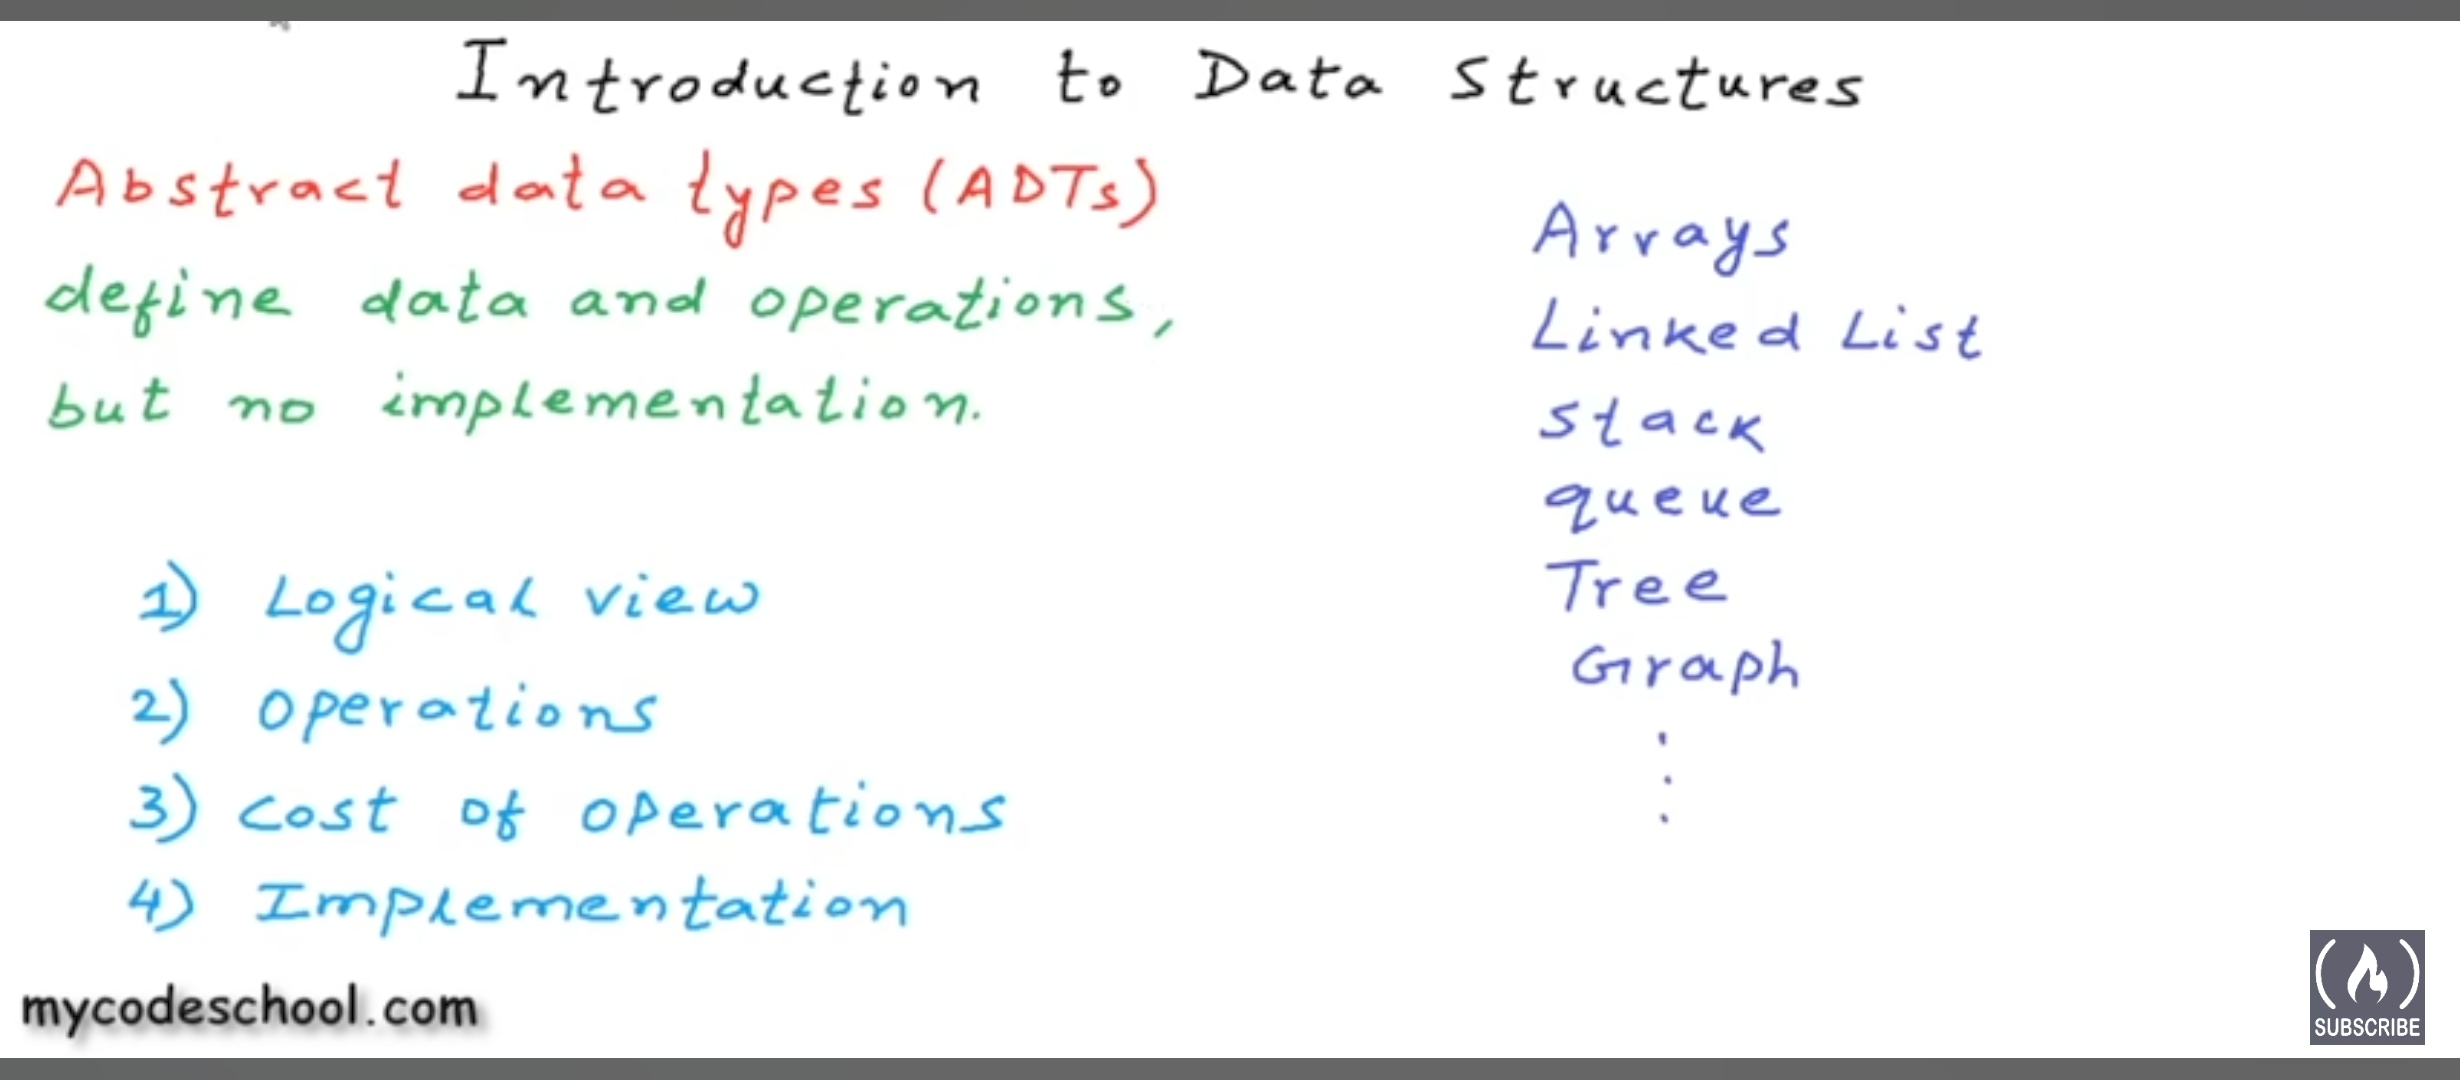 Introduction to Data Structures
Abstract data types (ADTs)
define data and operations,
but no implementation.
1) Logical view
2) operations
3) cost of operations
4) Implementation
Arrays
Linked List
Stack
queue
Tree
Graph
mycodeschool.com
SUBSCRIBE